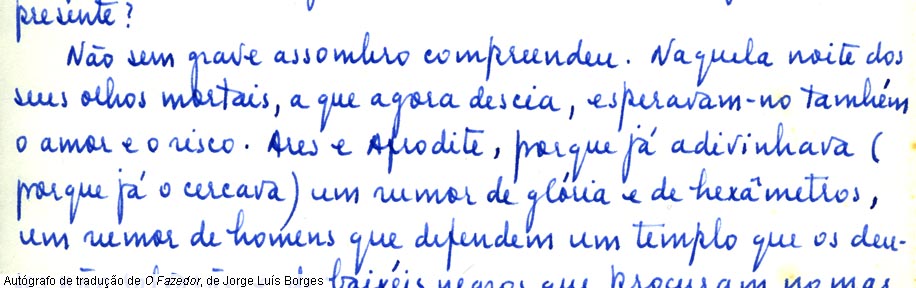 presente?
Não sem grave assombro compreendeu. Naquela noite dos
seus olhos mortais, a que agora descia, esperavam-no também
o amor e o risco. Ares e Afrodite, porque já adivinhava (
porque já o cercava) um rumor de glória e de hexâmetros,
um rumor de homens que defendem um templo que os deu-
baixéis negros que procuram no mar
Autógrafo de tradução de O Fazedor, de Jorge Luís Borges